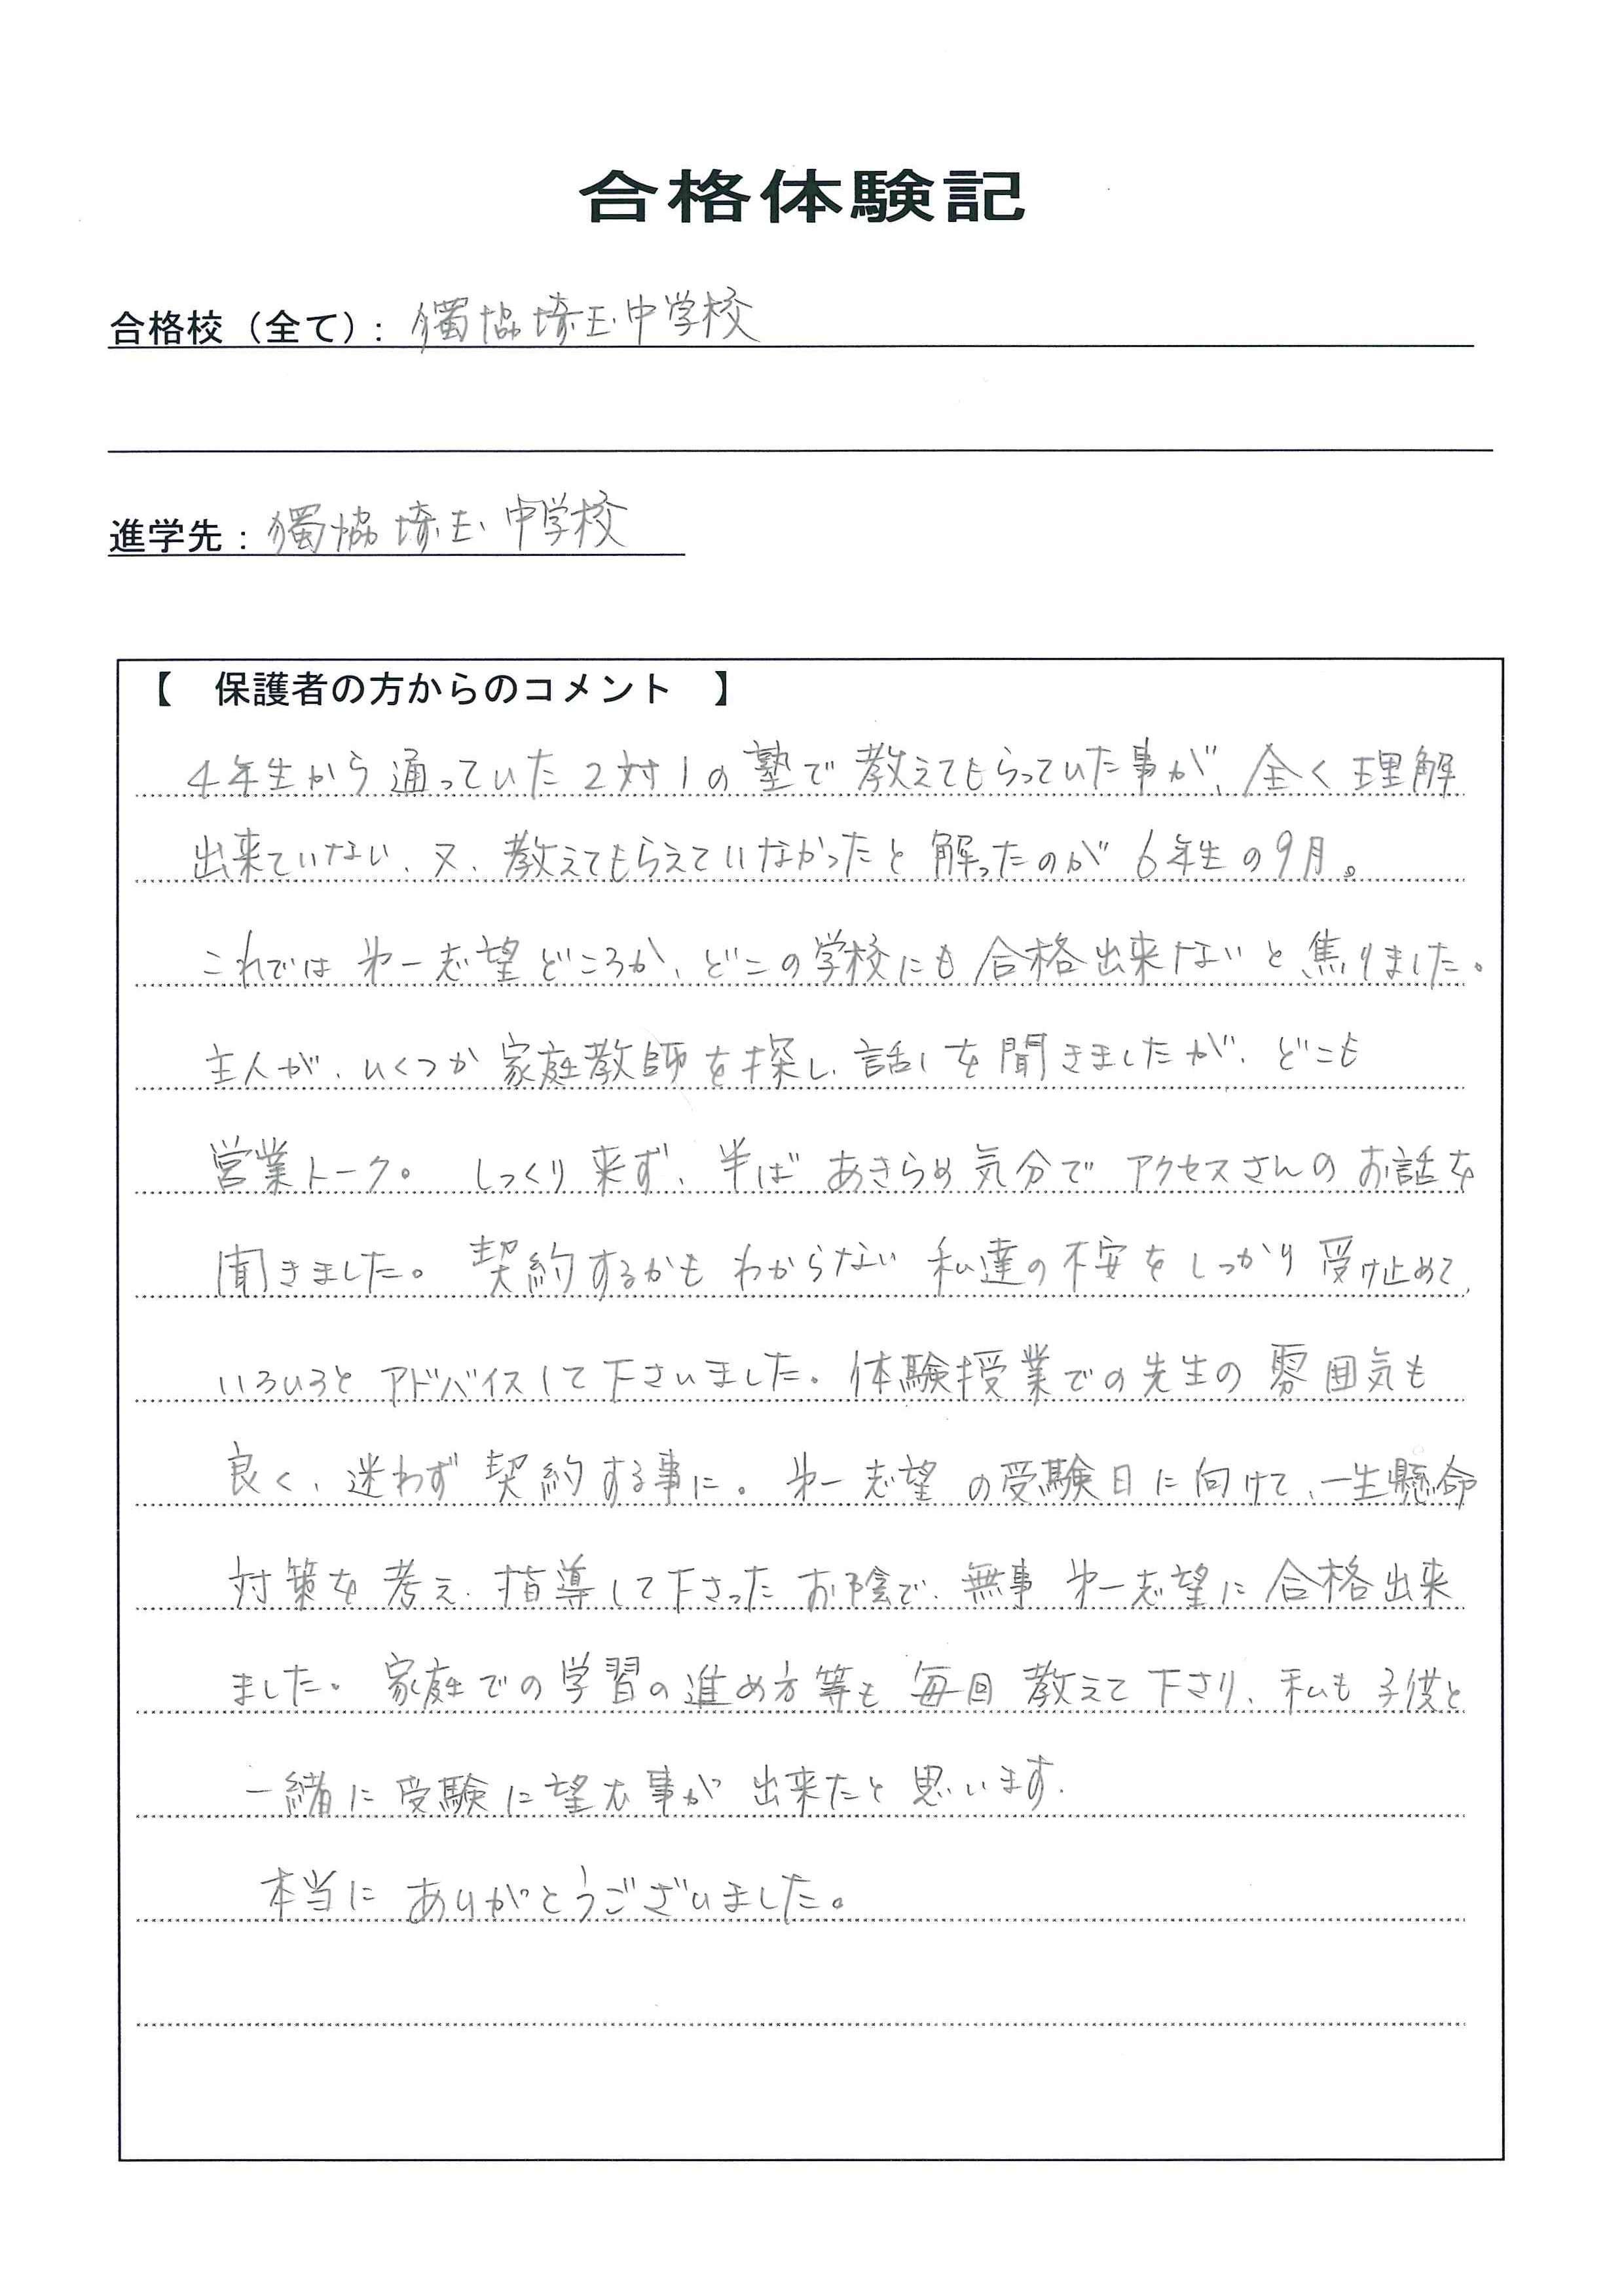 合格体験記
合格校（全て）: 獨協埼玉中学校
進学先 : 獨協埼玉中学校
【　保護者の方からのコメント　】
4年生から通っていた2対1の塾で教えてもらっていた事が、全く理解
出来ていない、又、教えてもらえていなかったと解ったのが6年生の9月。
これでは第一志望どころか、どこの学校にも合格出来ないと焦りました。
主人が、いくつか家庭教師を探し、話しを聞きましたが、どこも
営業トーク。しっくり来ず、半ばあきらめ気分でアクセスさんのお話を
聞きました。契約するかもわからない私達の不安をしっかり受け止めて、
いろいろとアドバイスして下さいました。体験授業での先生の雰囲気も
良く、迷わず契約する事に。第一志望の受験日に向けて、一生懸命
対策を考え、指導して下さったお陰で、無事第一志望に合格出来
ました。家庭での学習の進め方等も毎回教えて下さり、私も子供と
一緒に受験に望む事が出来たと思います.
本当にありがとうございました。